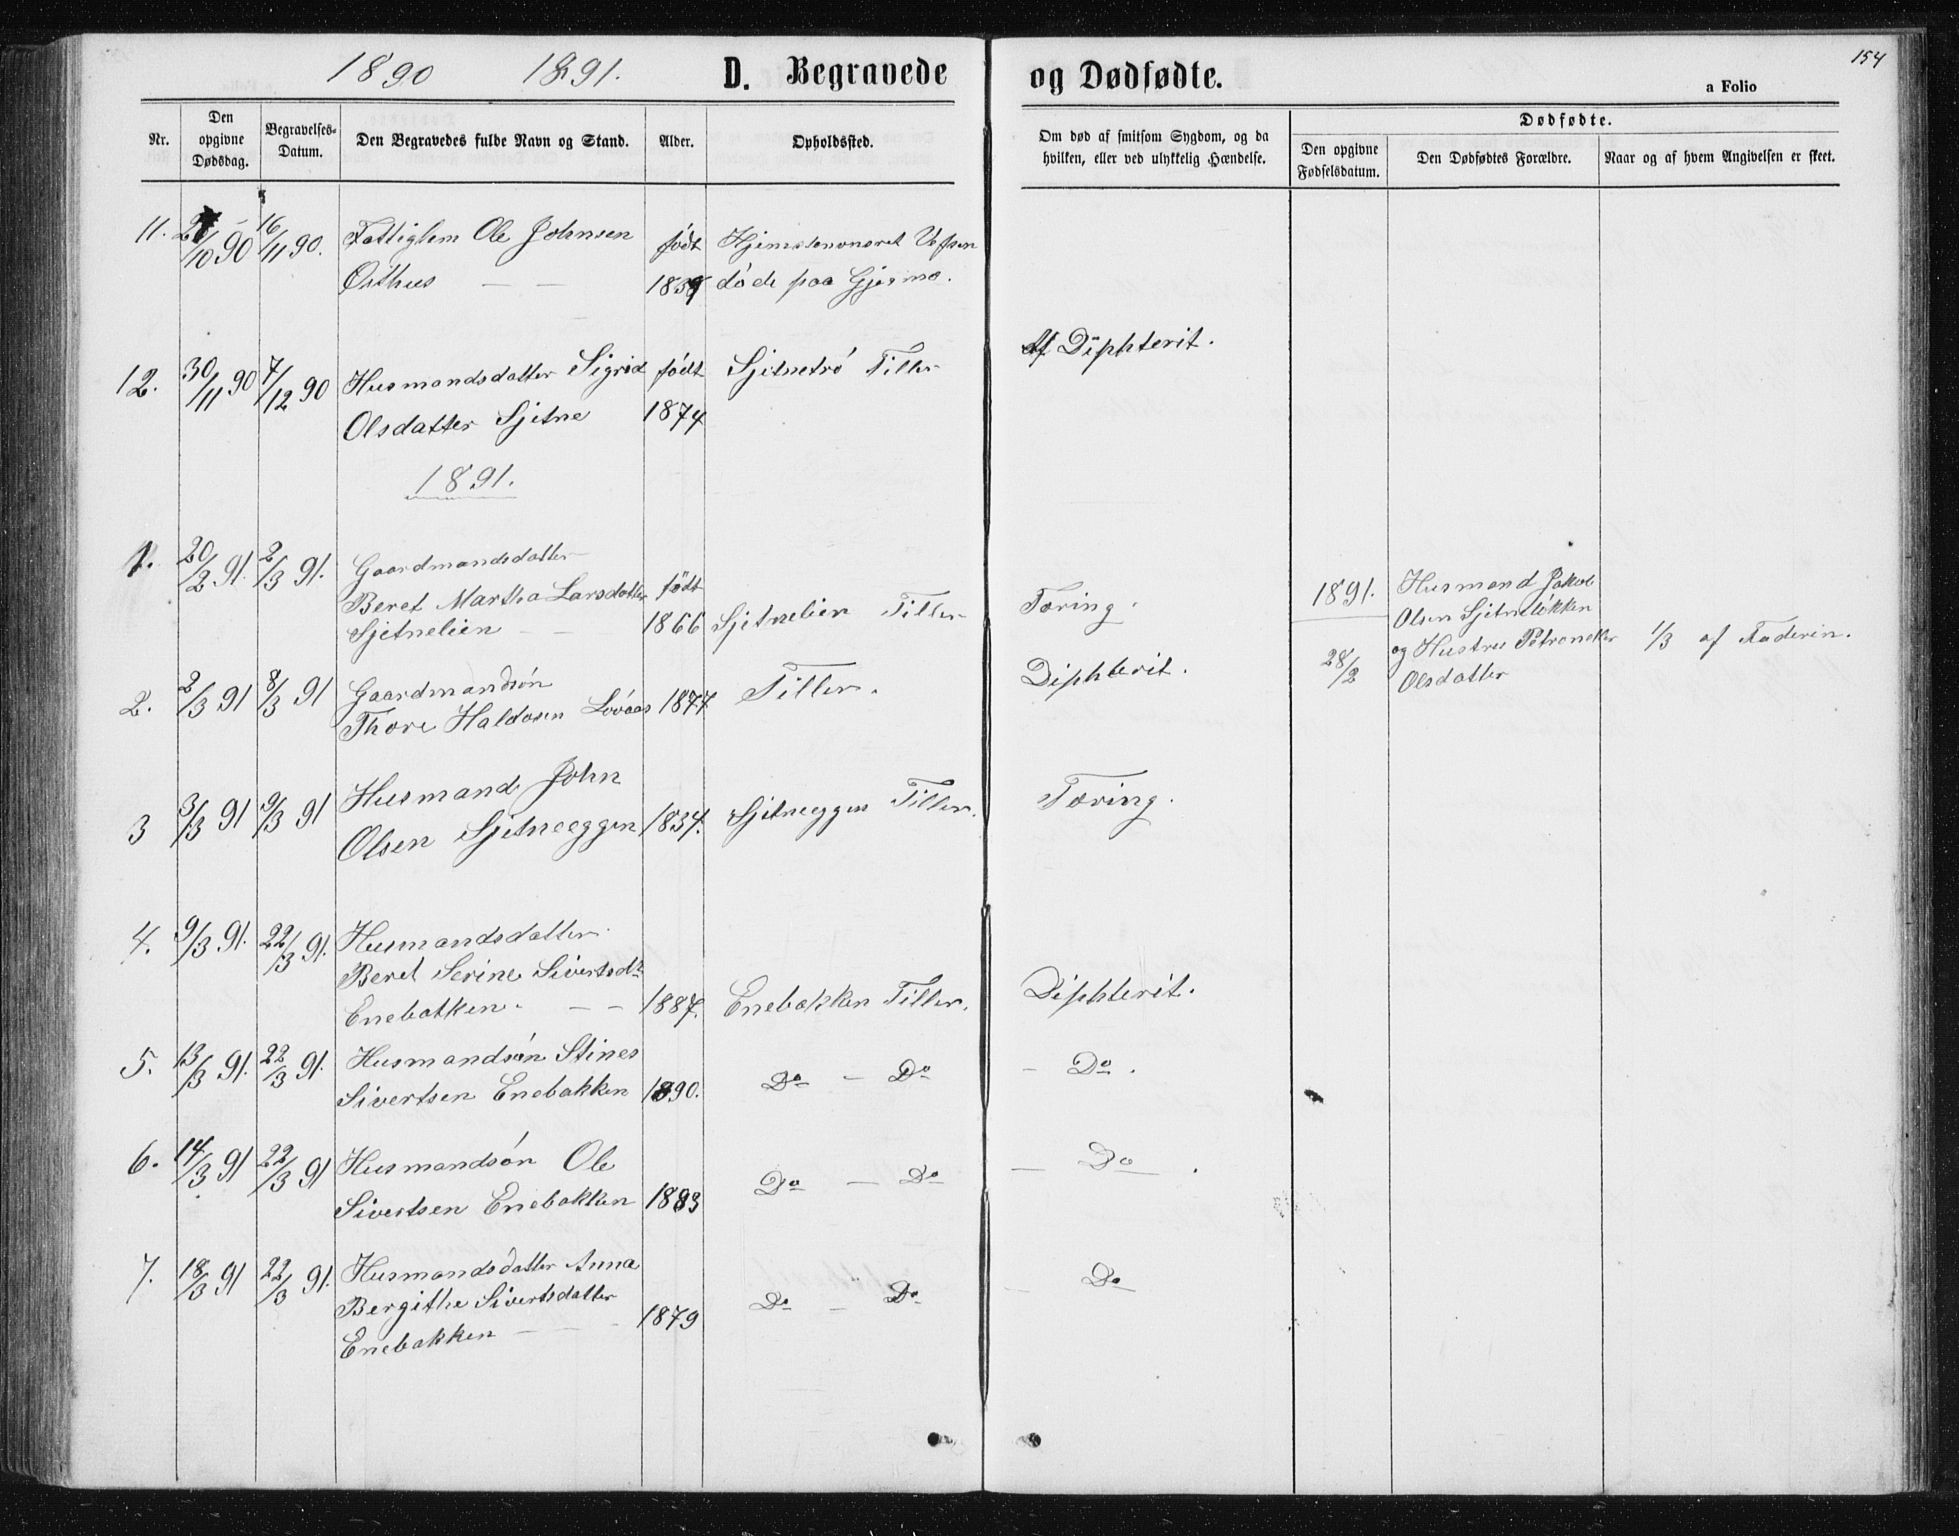 1890 1891. D. Begravede og Dødfødte. 154
a Folio
Nr. Den opgivne Dødsdag. Begravelses-Datum. Den Begravedes fulde Navn og Stand. Alder. Opholdssted. Om død af smitsom Sygdom, og da hvilken, eller ved ulykkelig Hændelse. Dødfødte. Den opgivne Fødselsdatum. Den Dødfødtes Forældre. Naar og af hvem Angivelsen er skeet.
11. /10 90 16/11 90. Fattiglem Ole Johnsen født
Østhus — — døde paa
12. 30/11 90 7/12 90 Husmandsdatter Sigrid født Sjetnetrø Tiller Af Diphterit.
Olsdatter Sjetne 1874
1891.
1. 20/2 91. 2/3 91. Gaardmandsdatter
Beret Martha Larsdatter født
Sjetnelien — — 1866 Sjetnelien Tiller Tæring.
1891. Husmand Jakob
Olsen Sjetneløkken
28/2 og Hustru 1/3 af Faderen.
Olsdatter
2. 2/3 91 8/3 91 Gaardmandsøn
Thore Haldosen Løvaas 1877 Tiller. Diphterit.
3 3/3 91 9/3 91 Husmand John
Olsen Sjetneeggen 1834. Sjetneeggen Tiller. Tæring.
4. 9/3 91. 22/3 91. Husmandsdatter
Beret Serine Sivertsdtr
Enebakken. — — 1887. Enebakken Tiller. Diphterit.
5. 13/3 91. 22/3 91. Husmandsøn Stines
Sivertsen Enebakken 1890. Do — Do — Do.
6. 14/3 91 22/3 91 Husmandsøn Ole
Sivertsen Enebakken 1883 Do — Do — Do.
7. 18/3 91 22/3 91. Husmandsdatter Anna
Bergithe Sivertsdatter
Enebakken — — 1879 Do — Do — Do